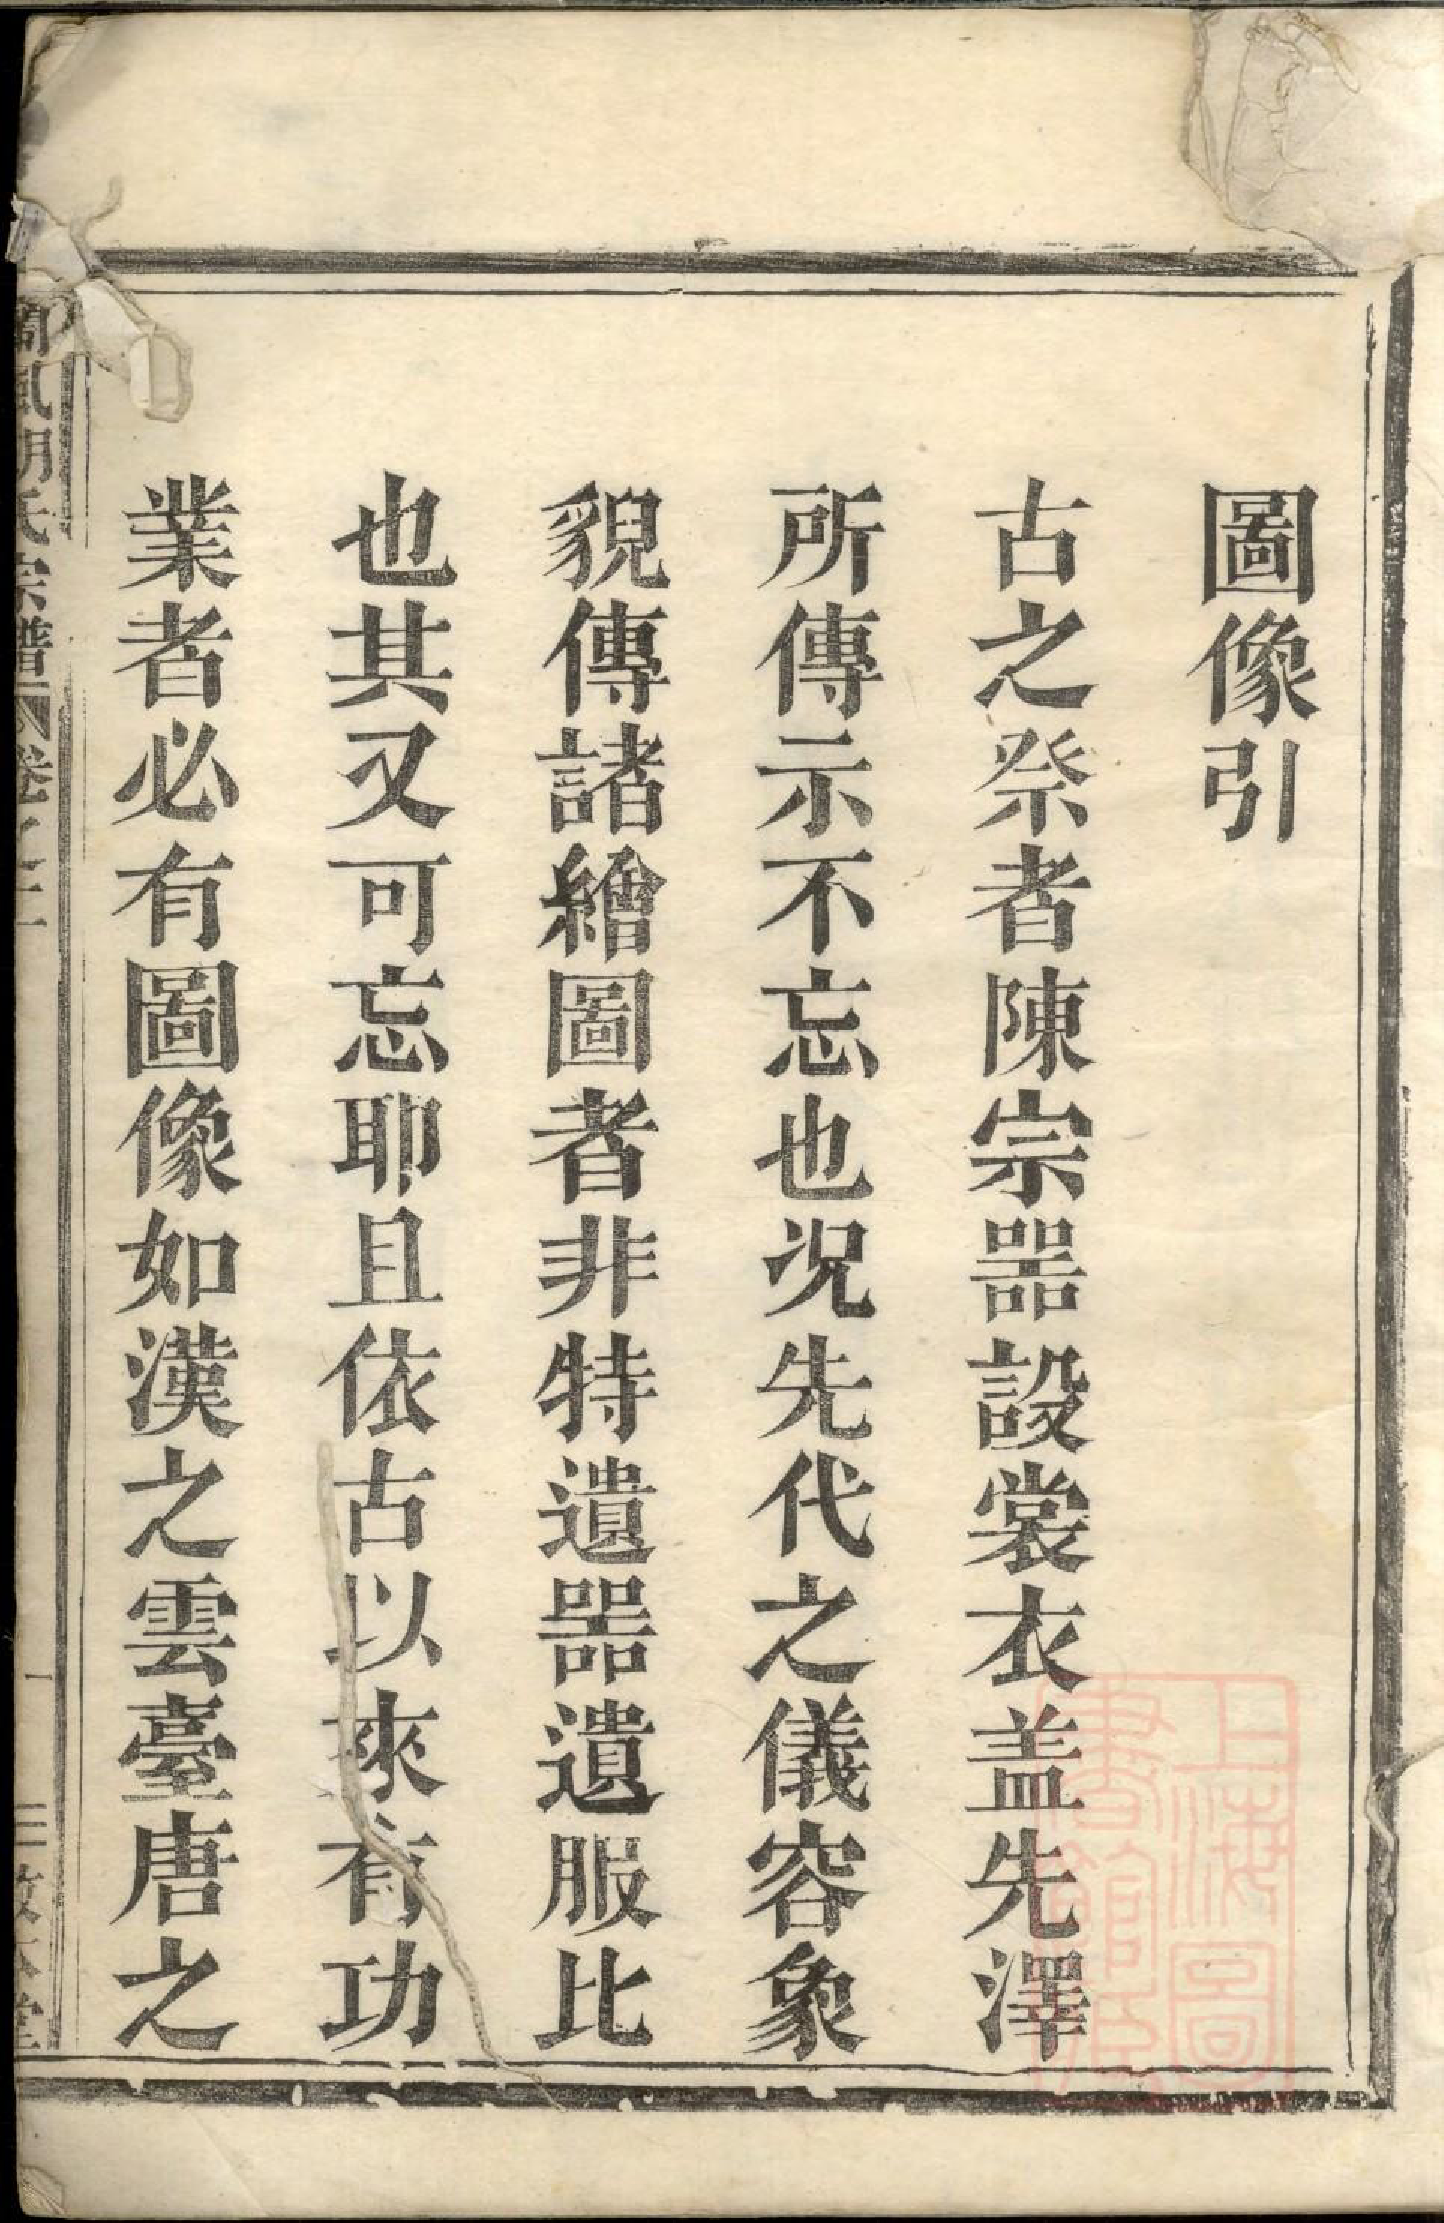 圖像引
古之祭者陳宗器設裳衣盖先澤
所傳示不忘也况先代之儀容象
貌傳諸繪圖者非特遺器遺服比
也其又可忘耶且依古以來有功
業者必有圖像如漢之雲臺唐之
氏宗譜 卷之二
一
上海圖書館藏